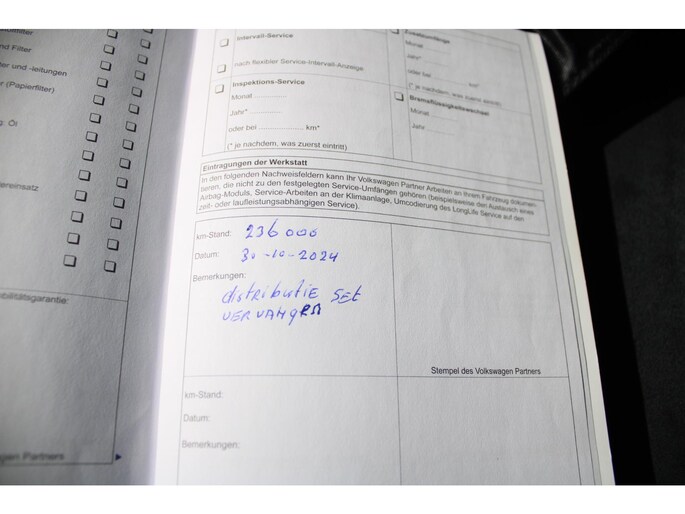 und Filter
ter und -leitungen
(Papierfilter)
Öl
einsatz
Partners
Intervall-Service
nach flexibler Service-Intervall-Anzeige
Inspektions-Service
Monat
Jahr*
oder bei km*
(* je nachdem, was zuerst eintritt)
Monat
Jahr*
oder bei km*
(* je nachdem, was zuerst eintritt)
Bremsflüssigkeitswechsel
Monat
Jahr
Eintragungen der Werkstatt
In den folgenden Nachweisfeldern kann Ihr Volkswagen Partner Arbeiten an Ihrem Fahrzeug dokumen-
tieren, die nicht zu den festgelegten Service-Umfängen gehören (beispielsweise den Austausch eines
Airbag-Moduls, Service-Arbeiten an der Klimaanlage, Umcodierung des LongLife Service auf den
zeit- oder laufleistungsabhängigen Service).
km-Stand: 236000
Datum: 30-10-2024
Bemerkungen:
distributie set
vervangen
Stempel des Volkswagen Partners
km-Stand:
Datum:
Bemerkungen: